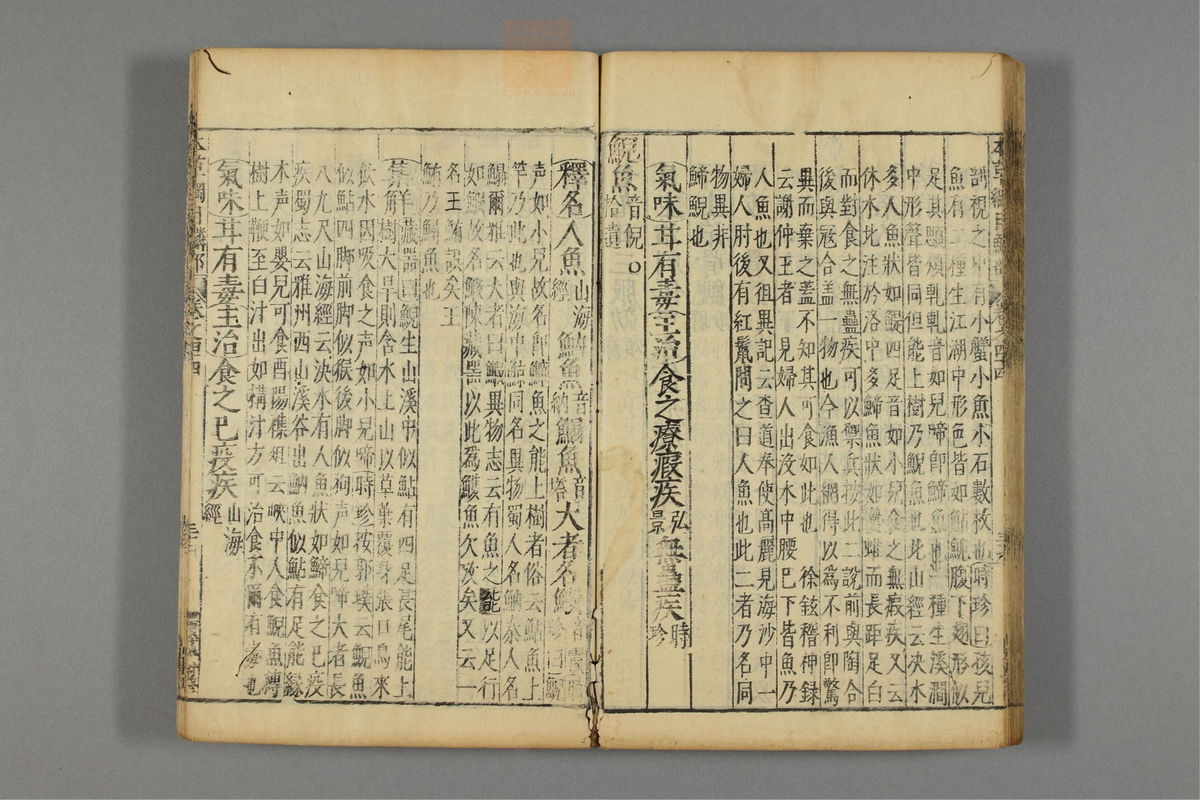 視之中有小蠻小魚小石數枚也時珍曰孩兒
魚有二種生江湖中形色皆如鮎鮠腹下翅形似
足其顋頰軋軋音如兒啼卽䱱魚也一種生溪澗
中形聲皆同但能上樹乃鯢魚也北山經云决水
多人魚狀如鯷四足音如小兒食之無瘕疾又云
休水北注於洛中多䱱魚狀如蟄蜼而長距足白
而對食之無蠱疾可以禦兵按此二說前與陶合
後與冦合盖一物也今漁人網得以爲不利卽驚
異而棄之蓋不知其可食如此也 徐鉉稽神錄
云謝仲玉者 見婦人出沒水中腰巳下皆魚乃
人魚也又徂異記云查道奉使高麗見海沙中一
婦人肘後有紅鬣問之曰人魚也此二者乃名同
物異非
䱱鯢也
氣味甘有毒主治食之療瘕疾弘景無蠱疾時珍
鯢魚音倪拾遺○
釋名人魚山海經魶魚音納鰨魚音塔大者名鰕
声如小兒故名卽䱱魚之能上樹者俗云鮎魚上
竿乃此也與海中鯨同名異物蜀人名魶秦人名
鰨爾雅云大者曰鰕異物志云有魚之能以足行
如鰕故名鰕陳藏器以此爲鱯魚欠攷矣又云一
名王鮪誤矣王
鮪乃鱘魚也
集解藏器曰鯢生山溪中似鮎有四足長尾能上
樹大旱則含水上山以草葉覆身張口鳥來
飲水因吸食之声如小兒啼時珍按郭璞云鯢魚
似鮎四脚前脚似猴後脚似狗声如兒啼大者長
八九尺山海經云决水有人魚狀如䱱食之巳疫
疾蜀志云雅州西山溪谷出魶魚似鮎有足能緣
木声如嬰兒可食酉陽襍俎云峽中人食鯢魚縛
樹上鞭至白汁出如搆汁方可治食不爾有毒也
氣味甘有毒主治食之巳疫疾山海經